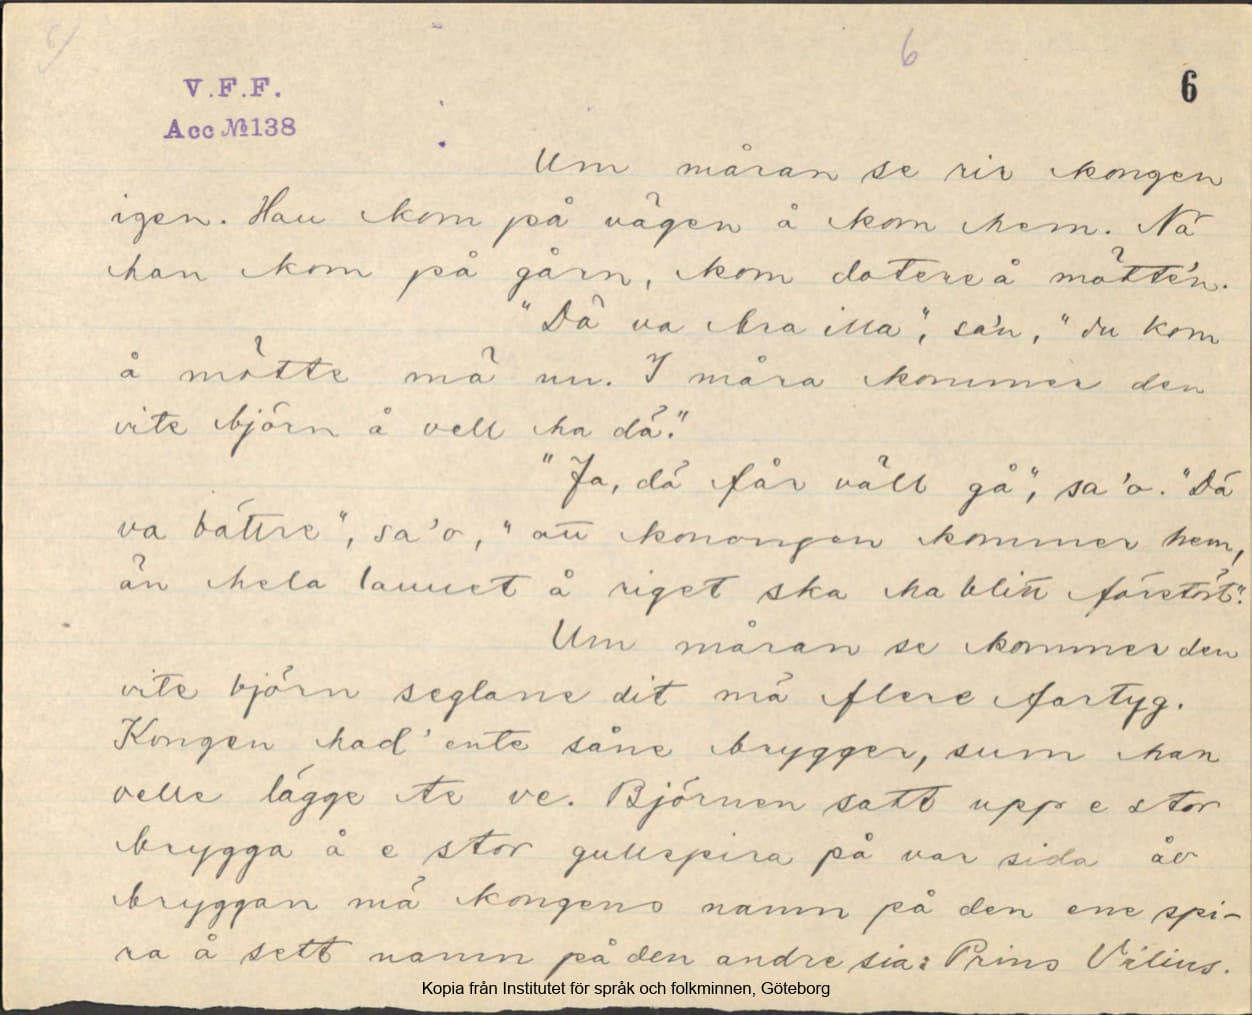 6
6
6
V.F.F.
Acc №138
Um måran se rir kongen
igen. Han kom på vägen å kom hem. Nä
han kom på gårn, kom datere å mötte'n.
"Dä va bra illa", sa'n, "du kom
å mötte mä nu. I måra kommer den
vite björn å vell ha dä."
"Ja, dä får väll gå", sa'o. "Dä
va bättre", sa'o, "att konongen kommer hem,
än hela lannet å riget ska ha blitt förstört".
Um måran se kommer den
vite björn seglane dit mä flere fartyg.
Kongen had' ente såne brygger, sum han
velle lägge te ve. Björnen satt upp e stor
brygga å e stor gullspira på var sida åv
bryggan mä kongens namn på den ene spi-
ra å sett namn på den andre sia: Prins Vilius.
Kopia från Institutet för språk och folkminnen, Göteborg